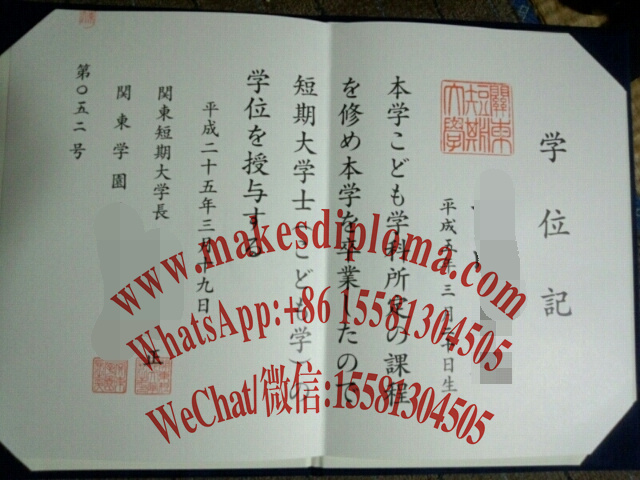 学位記
關東
短期
大學
平成五年三月 日生
本学こども学科所定の課程
を修め本学を卒業したので
短期大学士(こども学)の
学位を授与する
平成二十五年三月十九日
関東短期大学長
関東学園
第〇五二号
www.makesdiploma.com
WhatsApp:+86 15581304505
WeChat/微信:15581304505